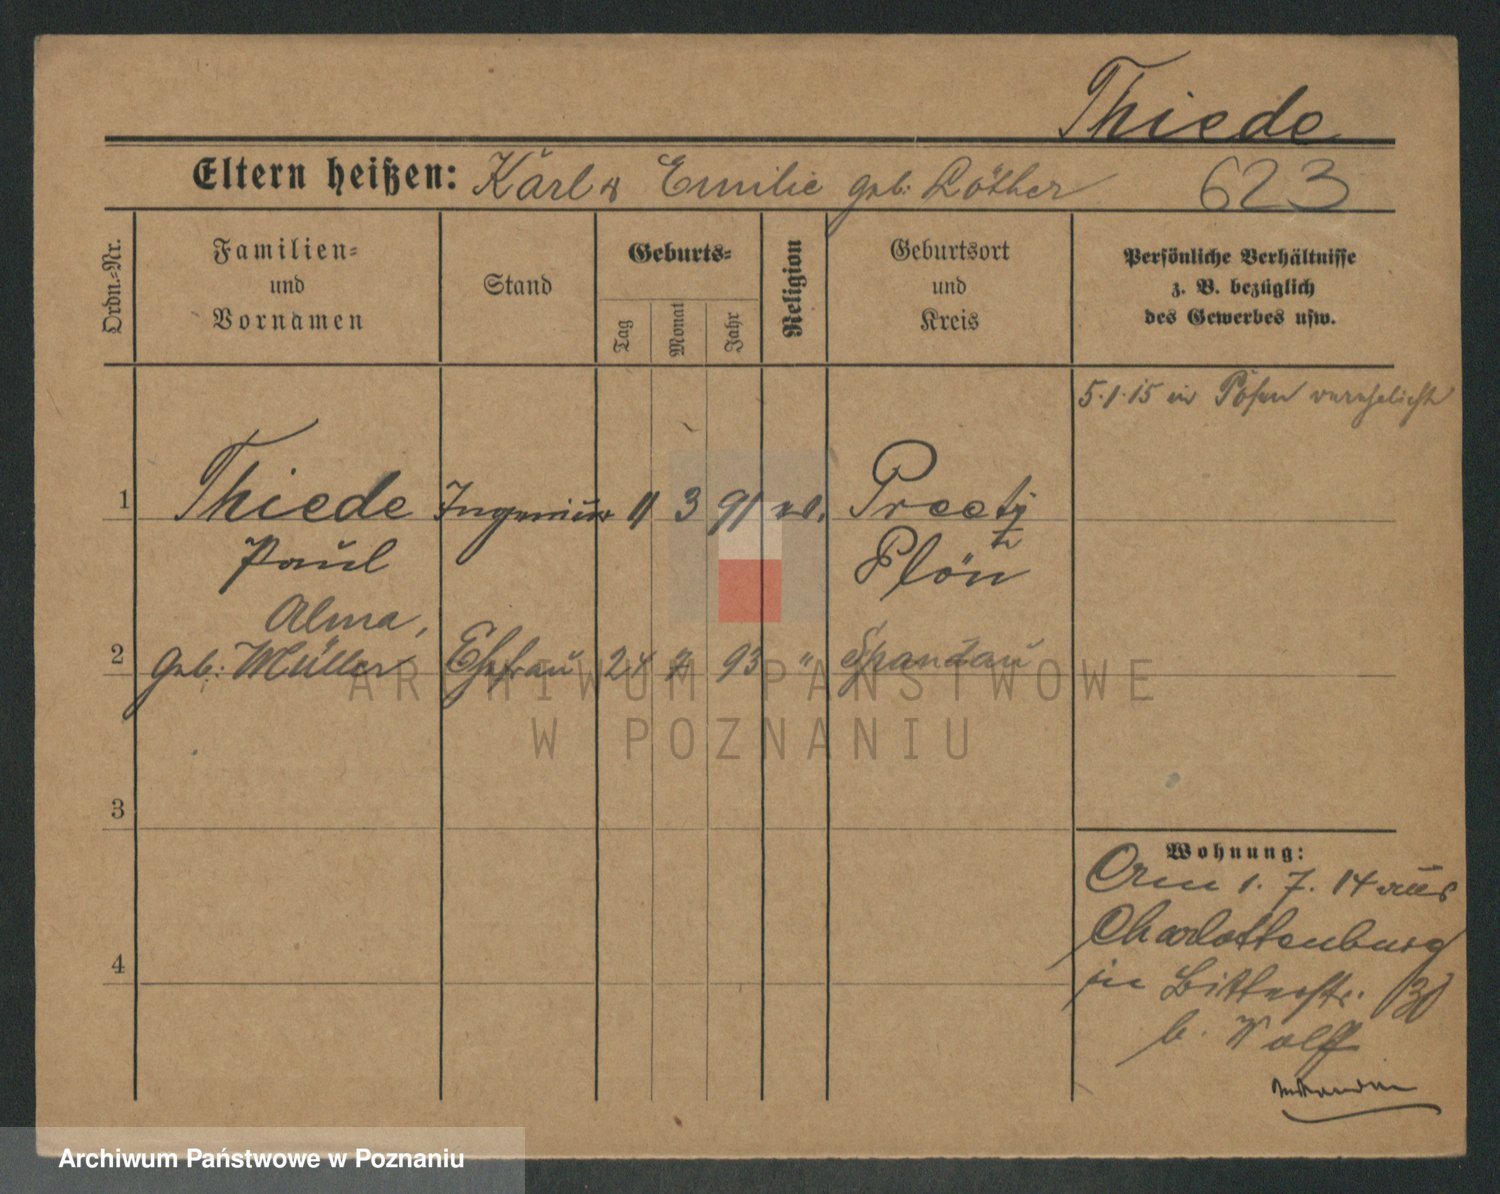 Thiede
Eltern heißen: Karl u Emilie geb. Löther 623
Ordn.=Nr.
Familien=
und
Vornamen
Stand
Geburts=
Tag
Monat
Jahr
Religion
Geburtsort
und
Kreis
Persönliche Verhältnisse
z. B. bezüglich
des Gewerbes usw.
5.1.15 in Posen verehelicht
1 Thiede Ingenieur 11 3 91 ev. Preetz
Paul Plön
Alma,
2 geb. Müller Ehefrau 24 7 93 " Spandau
3
4
Wohnung:
Am 1. 7. 14 aus
Charlottenburg
in Bitterstr. 30
b. Wolff
ARCHIWUM PAŃSTWOWE
W POZNANIU
Archiwum Państwowe w Poznaniu